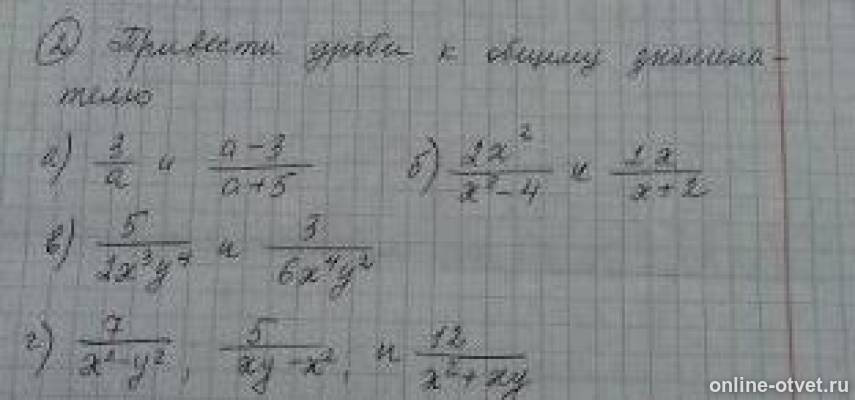 ② Привести дроби к общему знамена-
телю
а) 3/a и (a-3)/(a+5) б) 2x²/(x²-4) и 1x/(x+2)
в) 5/(2x³y⁴) и 3/(6x⁴y²)
г) 7/(x²-y²), 5/(xy-x²), и 12/(x²+xy)
online-otvet.ru